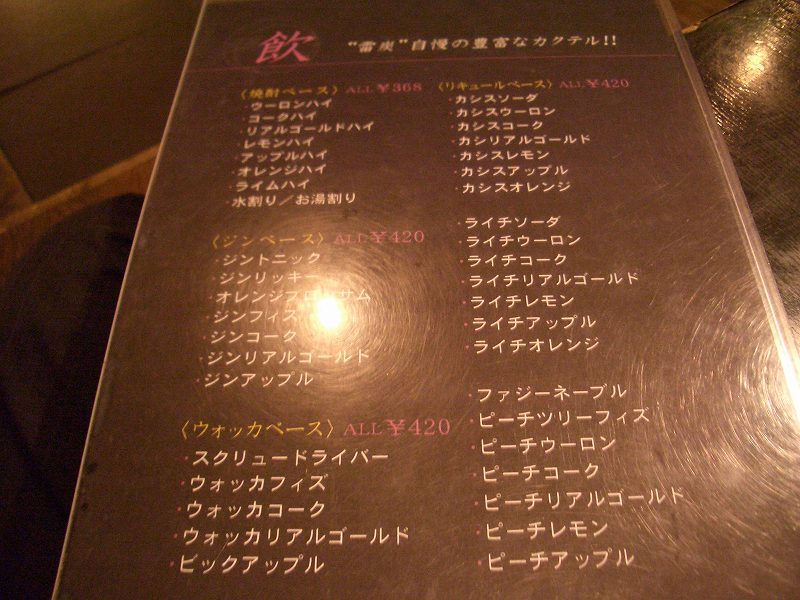 飲 "雷炭"自慢の豊富なカクテル!!
〈焼酎ベース〉 ALL ¥368
・ウーロンハイ
・コークハイ
・リアルゴールドハイ
・レモンハイ
・アップルハイ
・オレンジハイ
・ライムハイ
・水割り/お湯割り
〈ジンベース〉 ALL ¥420
・ジントニック
・ジンリッキー
・オレンジブロッサム
・ジンフィズ
・ジンコーク
・ジンリアルゴールド
・ジンアップル
〈ウォッカベース〉 ALL ¥420
・スクリュードライバー
・ウォッカフィズ
・ウォッカコーク
・ウォッカリアルゴールド
・ビックアップル
〈リキュールベース〉 ALL ¥420
・カシスソーダ
・カシスウーロン
・カシスコーク
・カシスリアルゴールド
・カシスレモン
・カシスアップル
・カシスオレンジ
・ライチソーダ
・ライチウーロン
・ライチコーク
・ライチリアルゴールド
・ライチレモン
・ライチアップル
・ライチオレンジ
・ファジーネーブル
・ピーチツリーフィズ
・ピーチウーロン
・ピーチコーク
・ピーチリアルゴールド
・ピーチレモン
・ピーチアップル